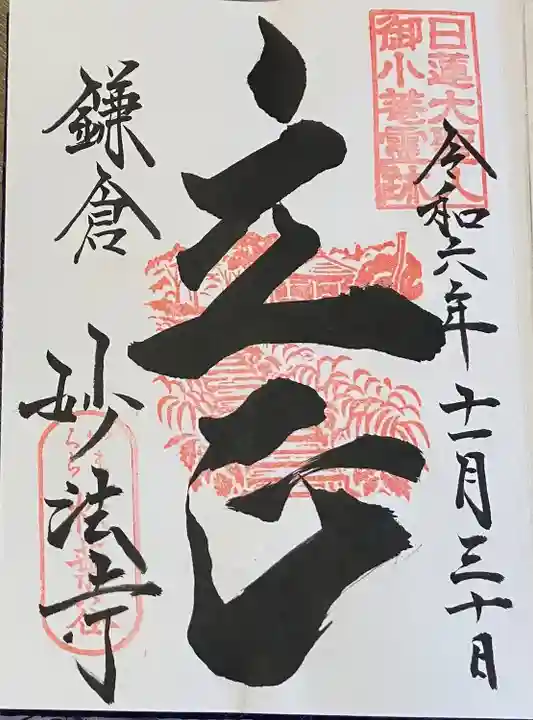 日蓮大聖人
御小菴霊跡
令和六年十一月三十日
立正
鎌倉 妙法寺